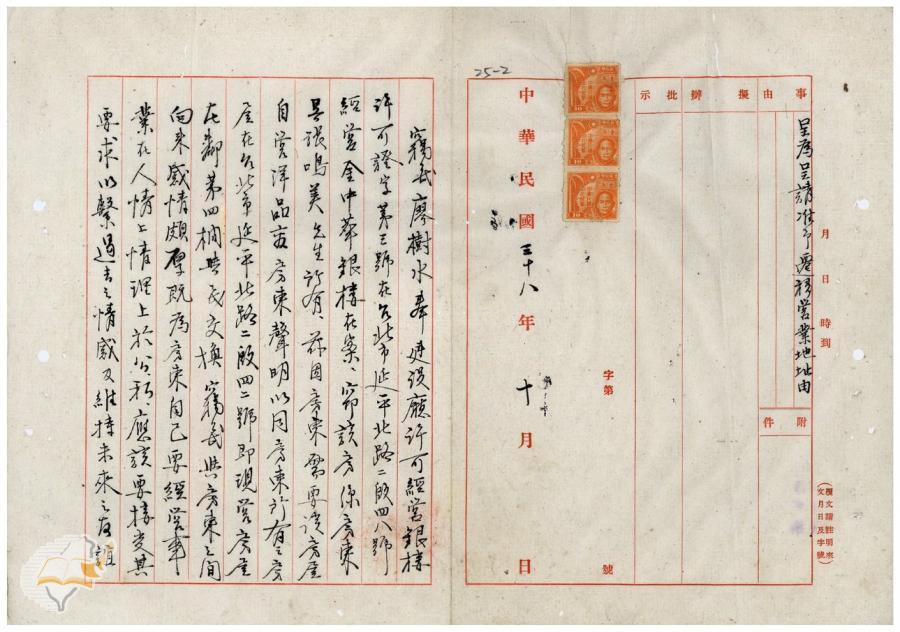 月 日 時到
事由 擬辦 批示
呈為呈請准予遷移營業地址由
附件
(覆文請註明來
文月日及字號)
字第 號
中華民國三十八年十月 日
25-2
竊民廖樹水奉 建設廳許可經營銀樓
許可證字第三號在台北市延平北路二段四八號
經營金中華銀樓在案、 該房係房東
吳張鳴美先生所有、茲因房東需要該房屋
自營洋品 房東聲明以同房東所有之房
屋在台北市延平北路二段四二號即現營房屋
北鄰第四 與民交換竊民與房東之間
向來感情頗厚既為房東自己要經營事
業在人情上情理上於公於私、應該要接受其
要求以繫過去之情感及維持未來之友誼